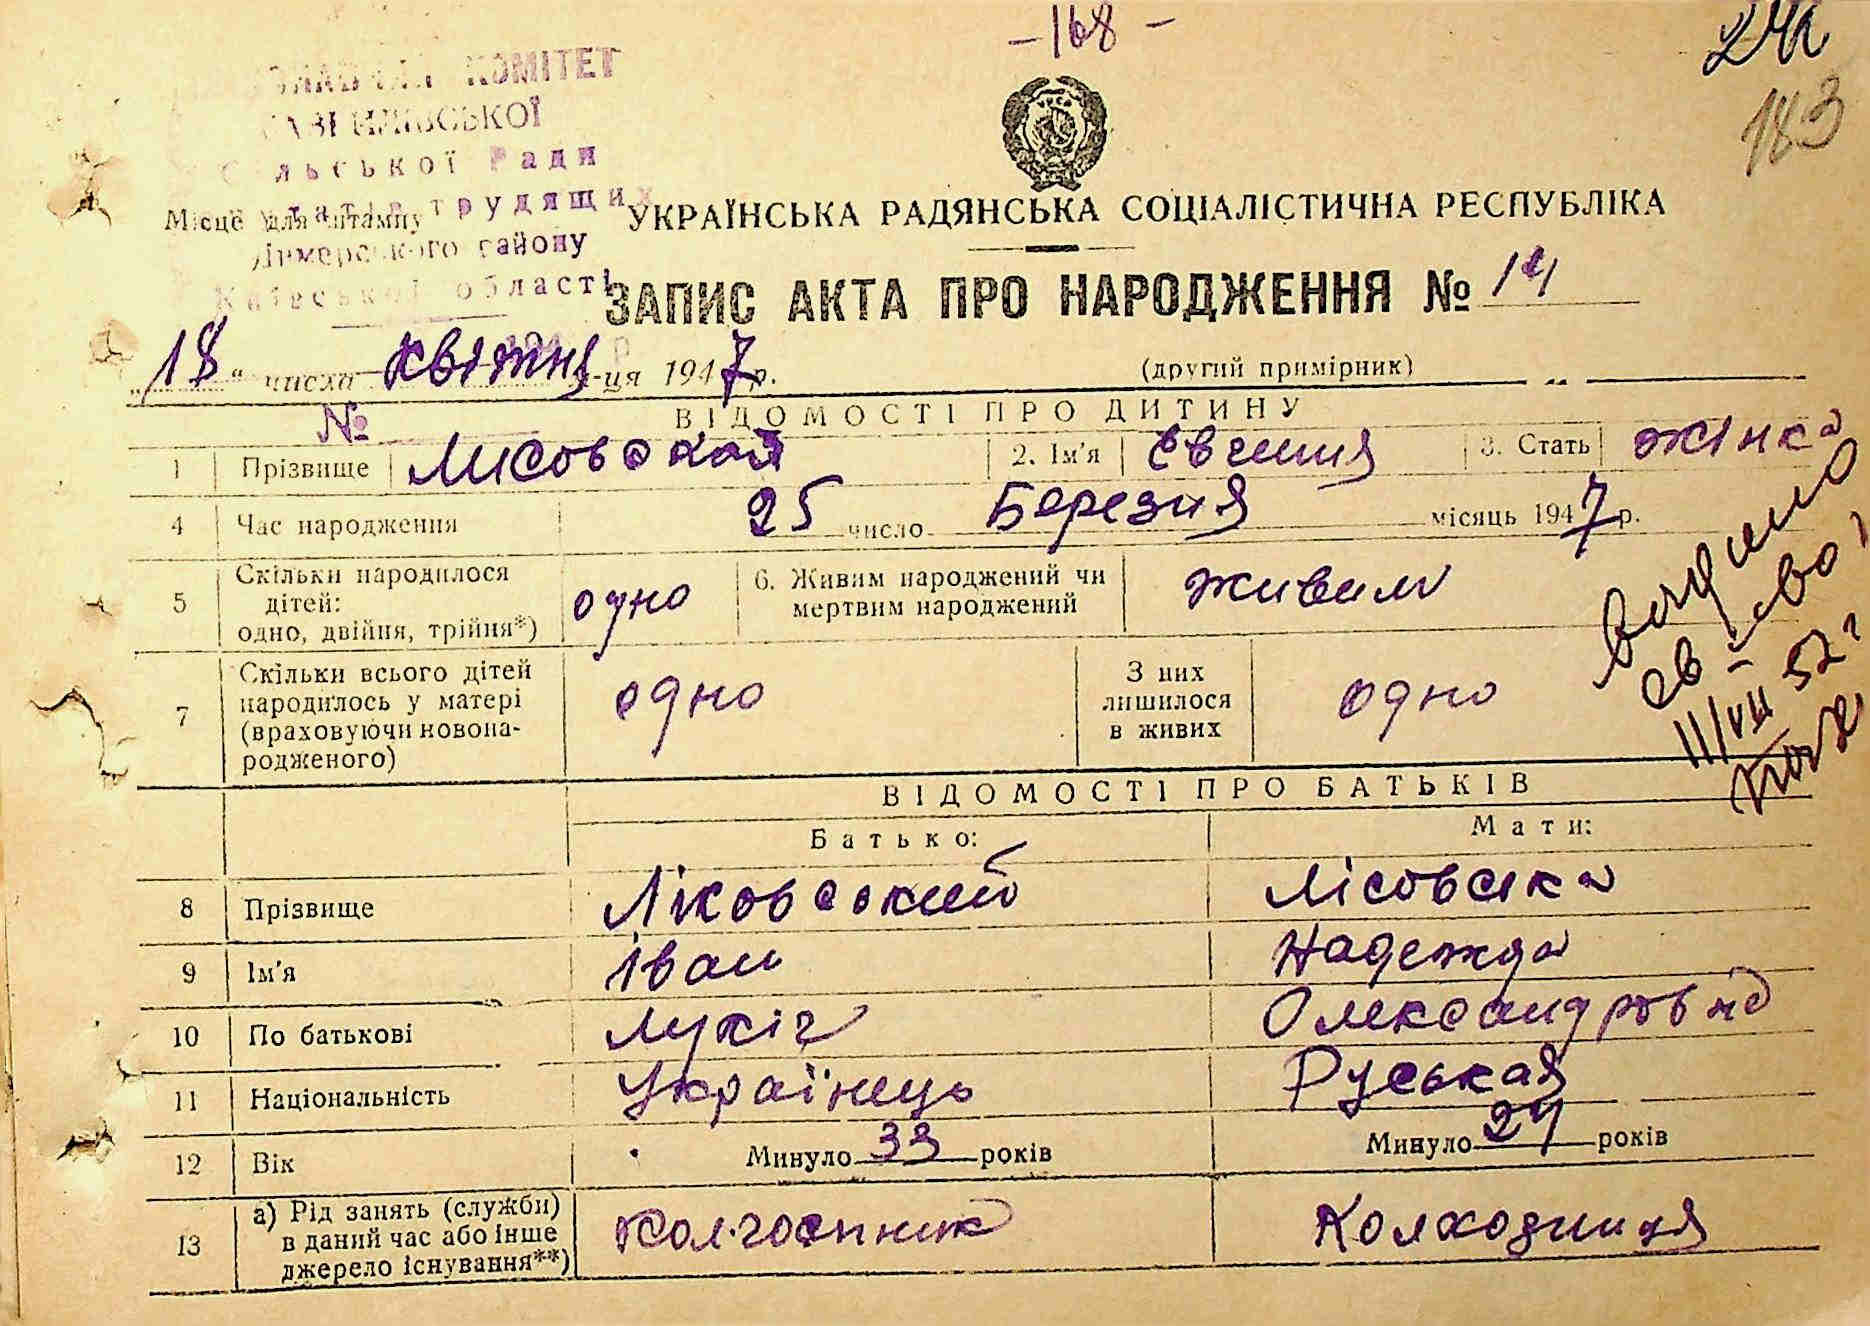 -168-
24
183
КОМІТЕТ
ГАВРИЛІВСЬКОЇ
Сільської Ради
депутатів трудящих
Димерського району
Київської області
Місце для штампу
УРСР
УКРАЇНСЬКА РАДЯНСЬКА СОЦІАЛІСТИЧНА РЕСПУБЛІКА
ЗАПИС АКТА ПРО НАРОДЖЕННЯ № 14
"18" числа квітня м-ця 1947 р. (другий примірник)
№
ВІДОМОСТІ ПРО ДИТИНУ
1 Прізвище Лисовская 2. Ім'я Евгения 3. Стать жінка
4 Час народження 25 число Березня місяць 1947 р.
5 Скільки народилося дітей: одно, двійня, трійня*) одно 6. Живим народжений чи мертвим народжений живим
7 Скільки всього дітей народилось у матері (враховуючи новонародженого) одно З них лишилося в живих одно
видано
св-во
11/VIII 52 г.
ВІДОМОСТІ ПРО БАТЬКІВ
Батько: Мати:
8 Прізвище Лісовський Лісовська
9 Ім'я Іван Надежда
10 По батькові Лукіч Олександровна
11 Національність Українець Руськая
12 Вік Минуло 33 років Минуло 24 років
13 а) Рід занять (служби) в даний час або інше джерело існування**) Колгоспник Колхозниця